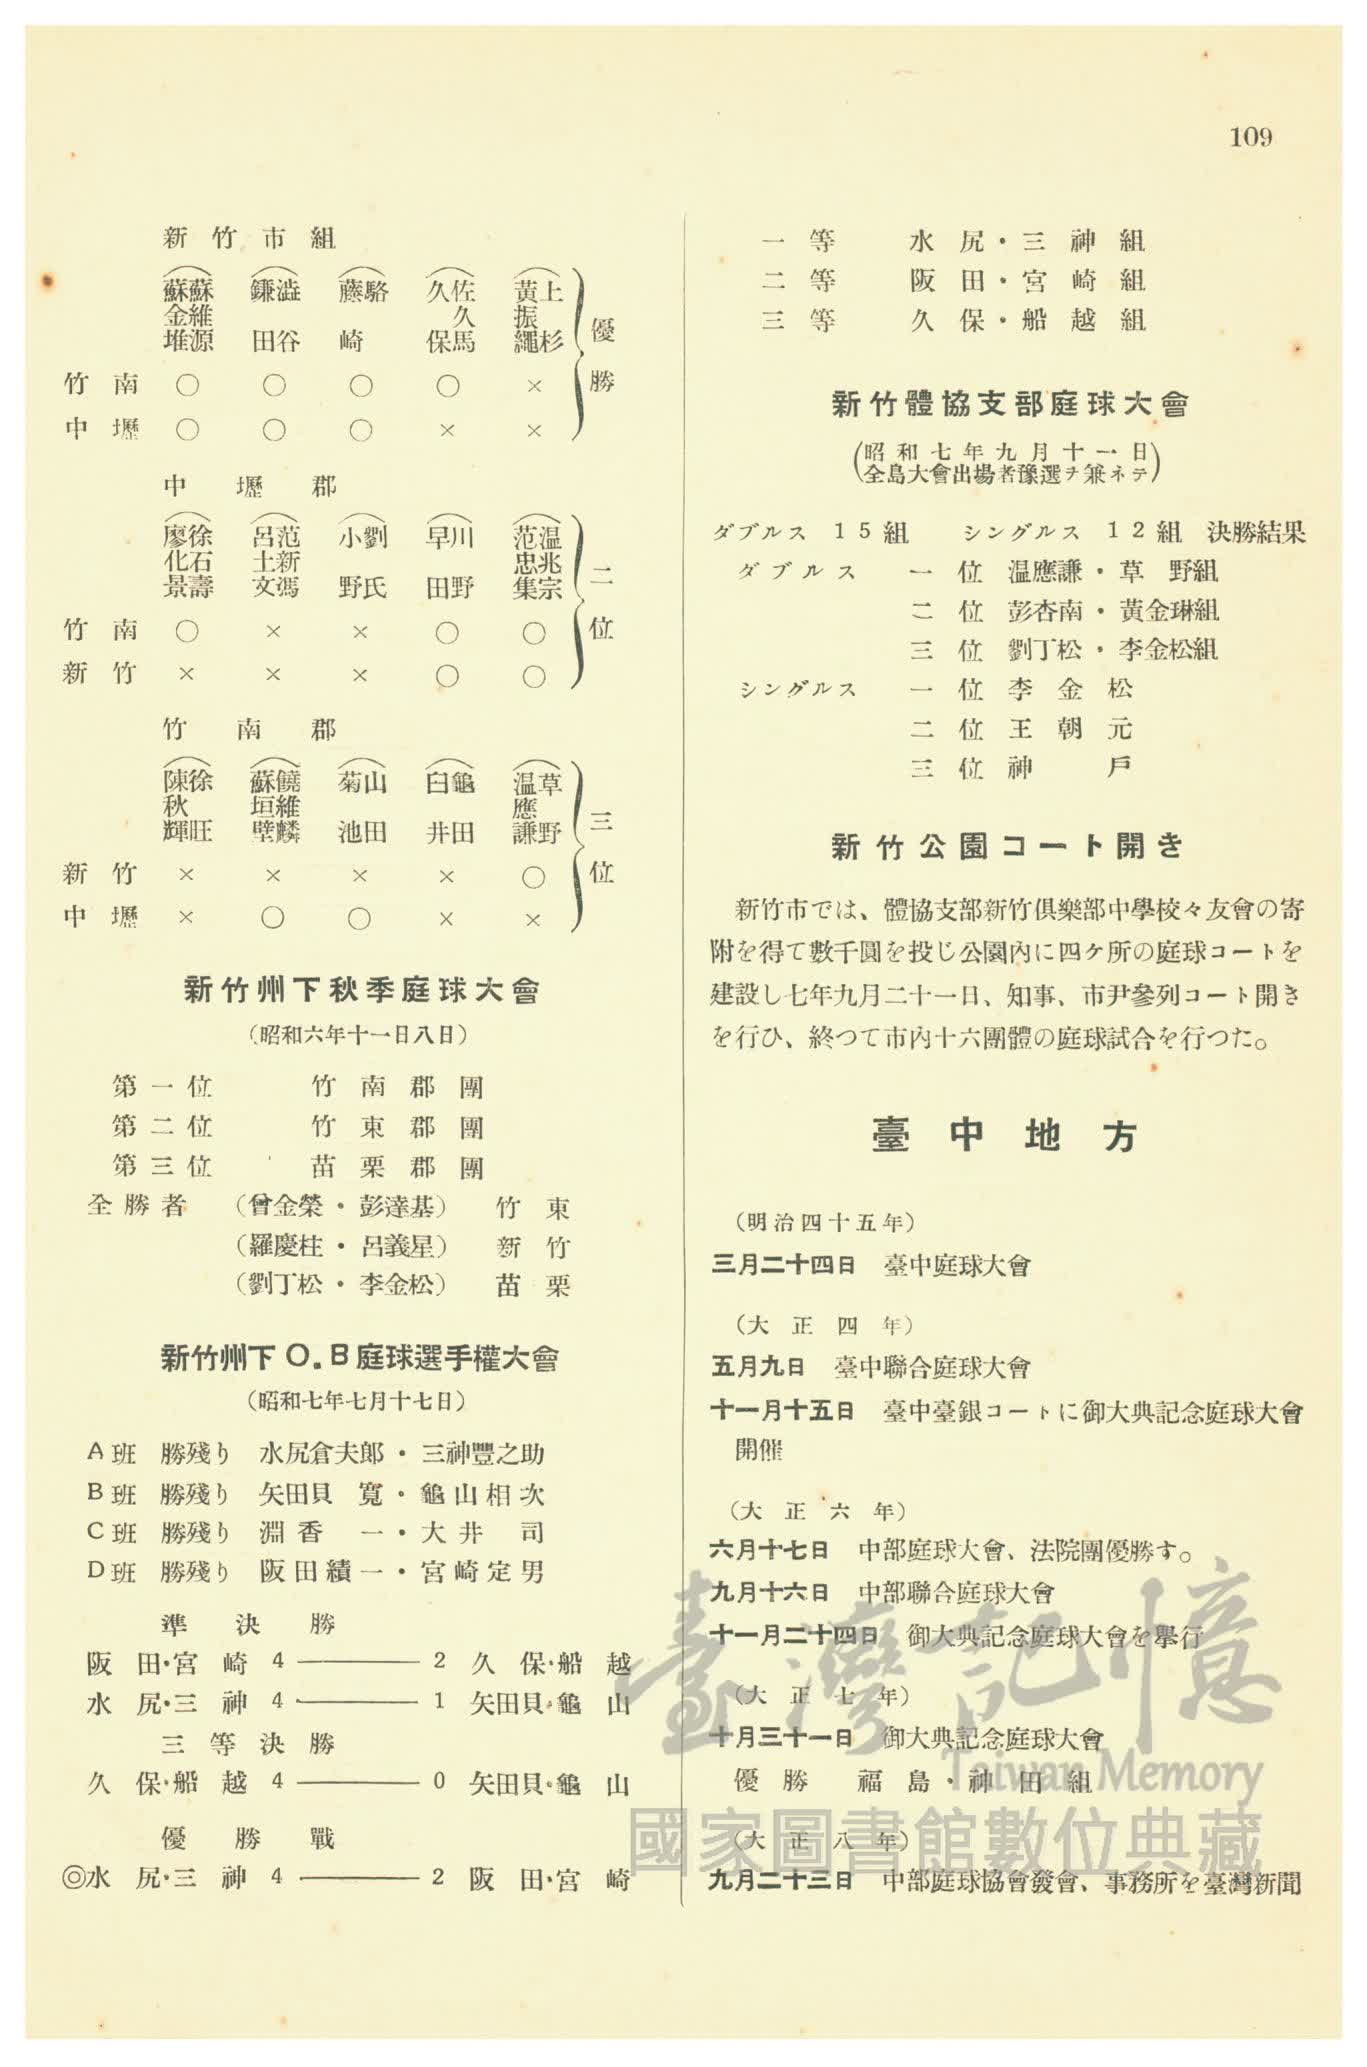 109
新竹市組
蘇金堆 蘇維源
鎌田 澁谷
藤崎 駱
久保 佐久馬
黃振繩 上杉
優勝
竹南 ○ ○ ○ ○ ×
中壢 ○ ○ ○ × ×
中壢郡
廖化景 徐石壽
呂士文 范新馮
小野 劉氏
早田 川野
范忠集 温兆宗
二位
竹南 ○ × × ○ ○
新竹 × × × ○ ○
竹南郡
陳秋輝 徐旺
蘇垣壁 饒維麟
菊池 山田
臼井 龜田
温應謙 草野
三位
新竹 × × × × ○
中壢 × ○ ○ × ×
新竹州下秋季庭球大會
(昭和六年十一日八日)
第一位 竹南郡團
第二位 竹東郡團
第三位 苗栗郡團
全勝者 (曾金榮・彭達基) 竹東
(羅慶柱・呂義星) 新竹
(劉丁松・李金松) 苗栗
新竹州下O.B庭球選手權大會
(昭和七年七月十七日)
A班 勝殘り 水尻倉夫郎・三神豐之助
B班 勝殘り 矢田貝 寬・龜山相次
C班 勝殘り 淵香 一・大井 司
D班 勝殘り 阪田績一・宮崎定男
準決勝
阪田・宮崎 4 ——— 2 久保・船越
水尻・三神 4 ——— 1 矢田貝・龜山
三等決勝
久保・船越 4 ——— 0 矢田貝・龜山
優勝戰
◎水尻・三神 4 ——— 2 阪田・宮崎
一等 水尻・三神組
二等 阪田・宮崎組
三等 久保・船越組
新竹體協支部庭球大會
(昭和七年九月十一日
全島大會出場者豫選ヲ兼ネテ)
ダブルス 15組 シングルス 12組 決勝結果
ダブルス 一位 温應謙・草 野組
二位 彭杏南・黃金琳組
三位 劉丁松・李金松組
シングルス 一位 李金松
二位 王朝元
三位 神戶
新竹公園コート開き
新竹市では、體協支部新竹俱樂部中學校々友會の寄
附を得て數千圓を投じ公園內に四ケ所の庭球コートを
建設し七年九月二十一日、知事、市尹參列コート開き
を行ひ、終つて市內十六團體の庭球試合を行つた。
臺中地方
(明治四十五年)
三月二十四日 臺中庭球大會
(大正四年)
五月九日 臺中聯合庭球大會
十一月十五日 臺中臺銀コートに御大典記念庭球大會
開催
(大正六年)
六月十七日 中部庭球大會、法院團優勝す。
九月十六日 中部聯合庭球大會
十一月二十四日 御大典記念庭球大會を擧行
(大正七年)
十月三十一日 御大典記念庭球大會
優勝 福島・神田組
(大正八年)
九月二十三日 中部庭球協會發會、事務所を臺灣新聞
臺灣記憶
Taiwan Memory
國家圖書館數位典藏